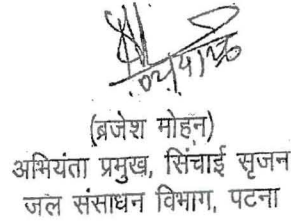 (ब्रजेश मोहन)
अभियंता प्रमुख, सिंचाई सृजन
जल संसाधन विभाग, पटना